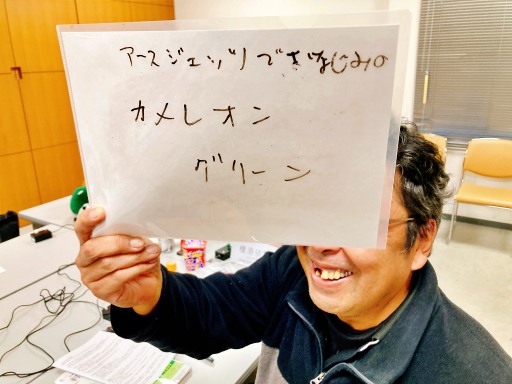 アースジェッツリでおなじみの
カメレオン
グリーン